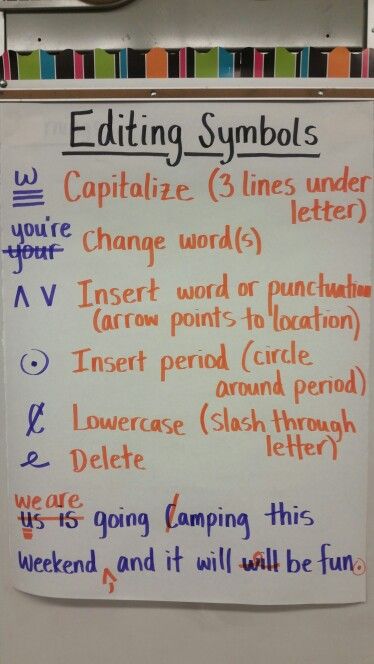 Editing Symbols
w Capitalize (3 lines under
letter)
you're
your Change word(s)
∧ ∨ Insert word or punctuation
(arrow points to location)
⊙ Insert period (circle
around period)
C Lowercase (slash through
letter)
Delete
we are
us is going Camping this
weekend , and it will will be fun.